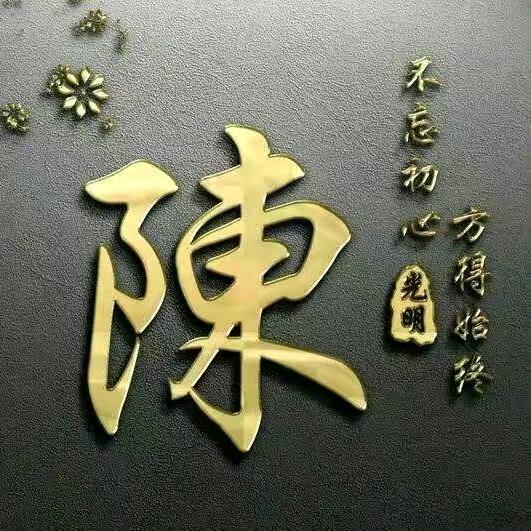 陳
不忘初心
方得始终
光明